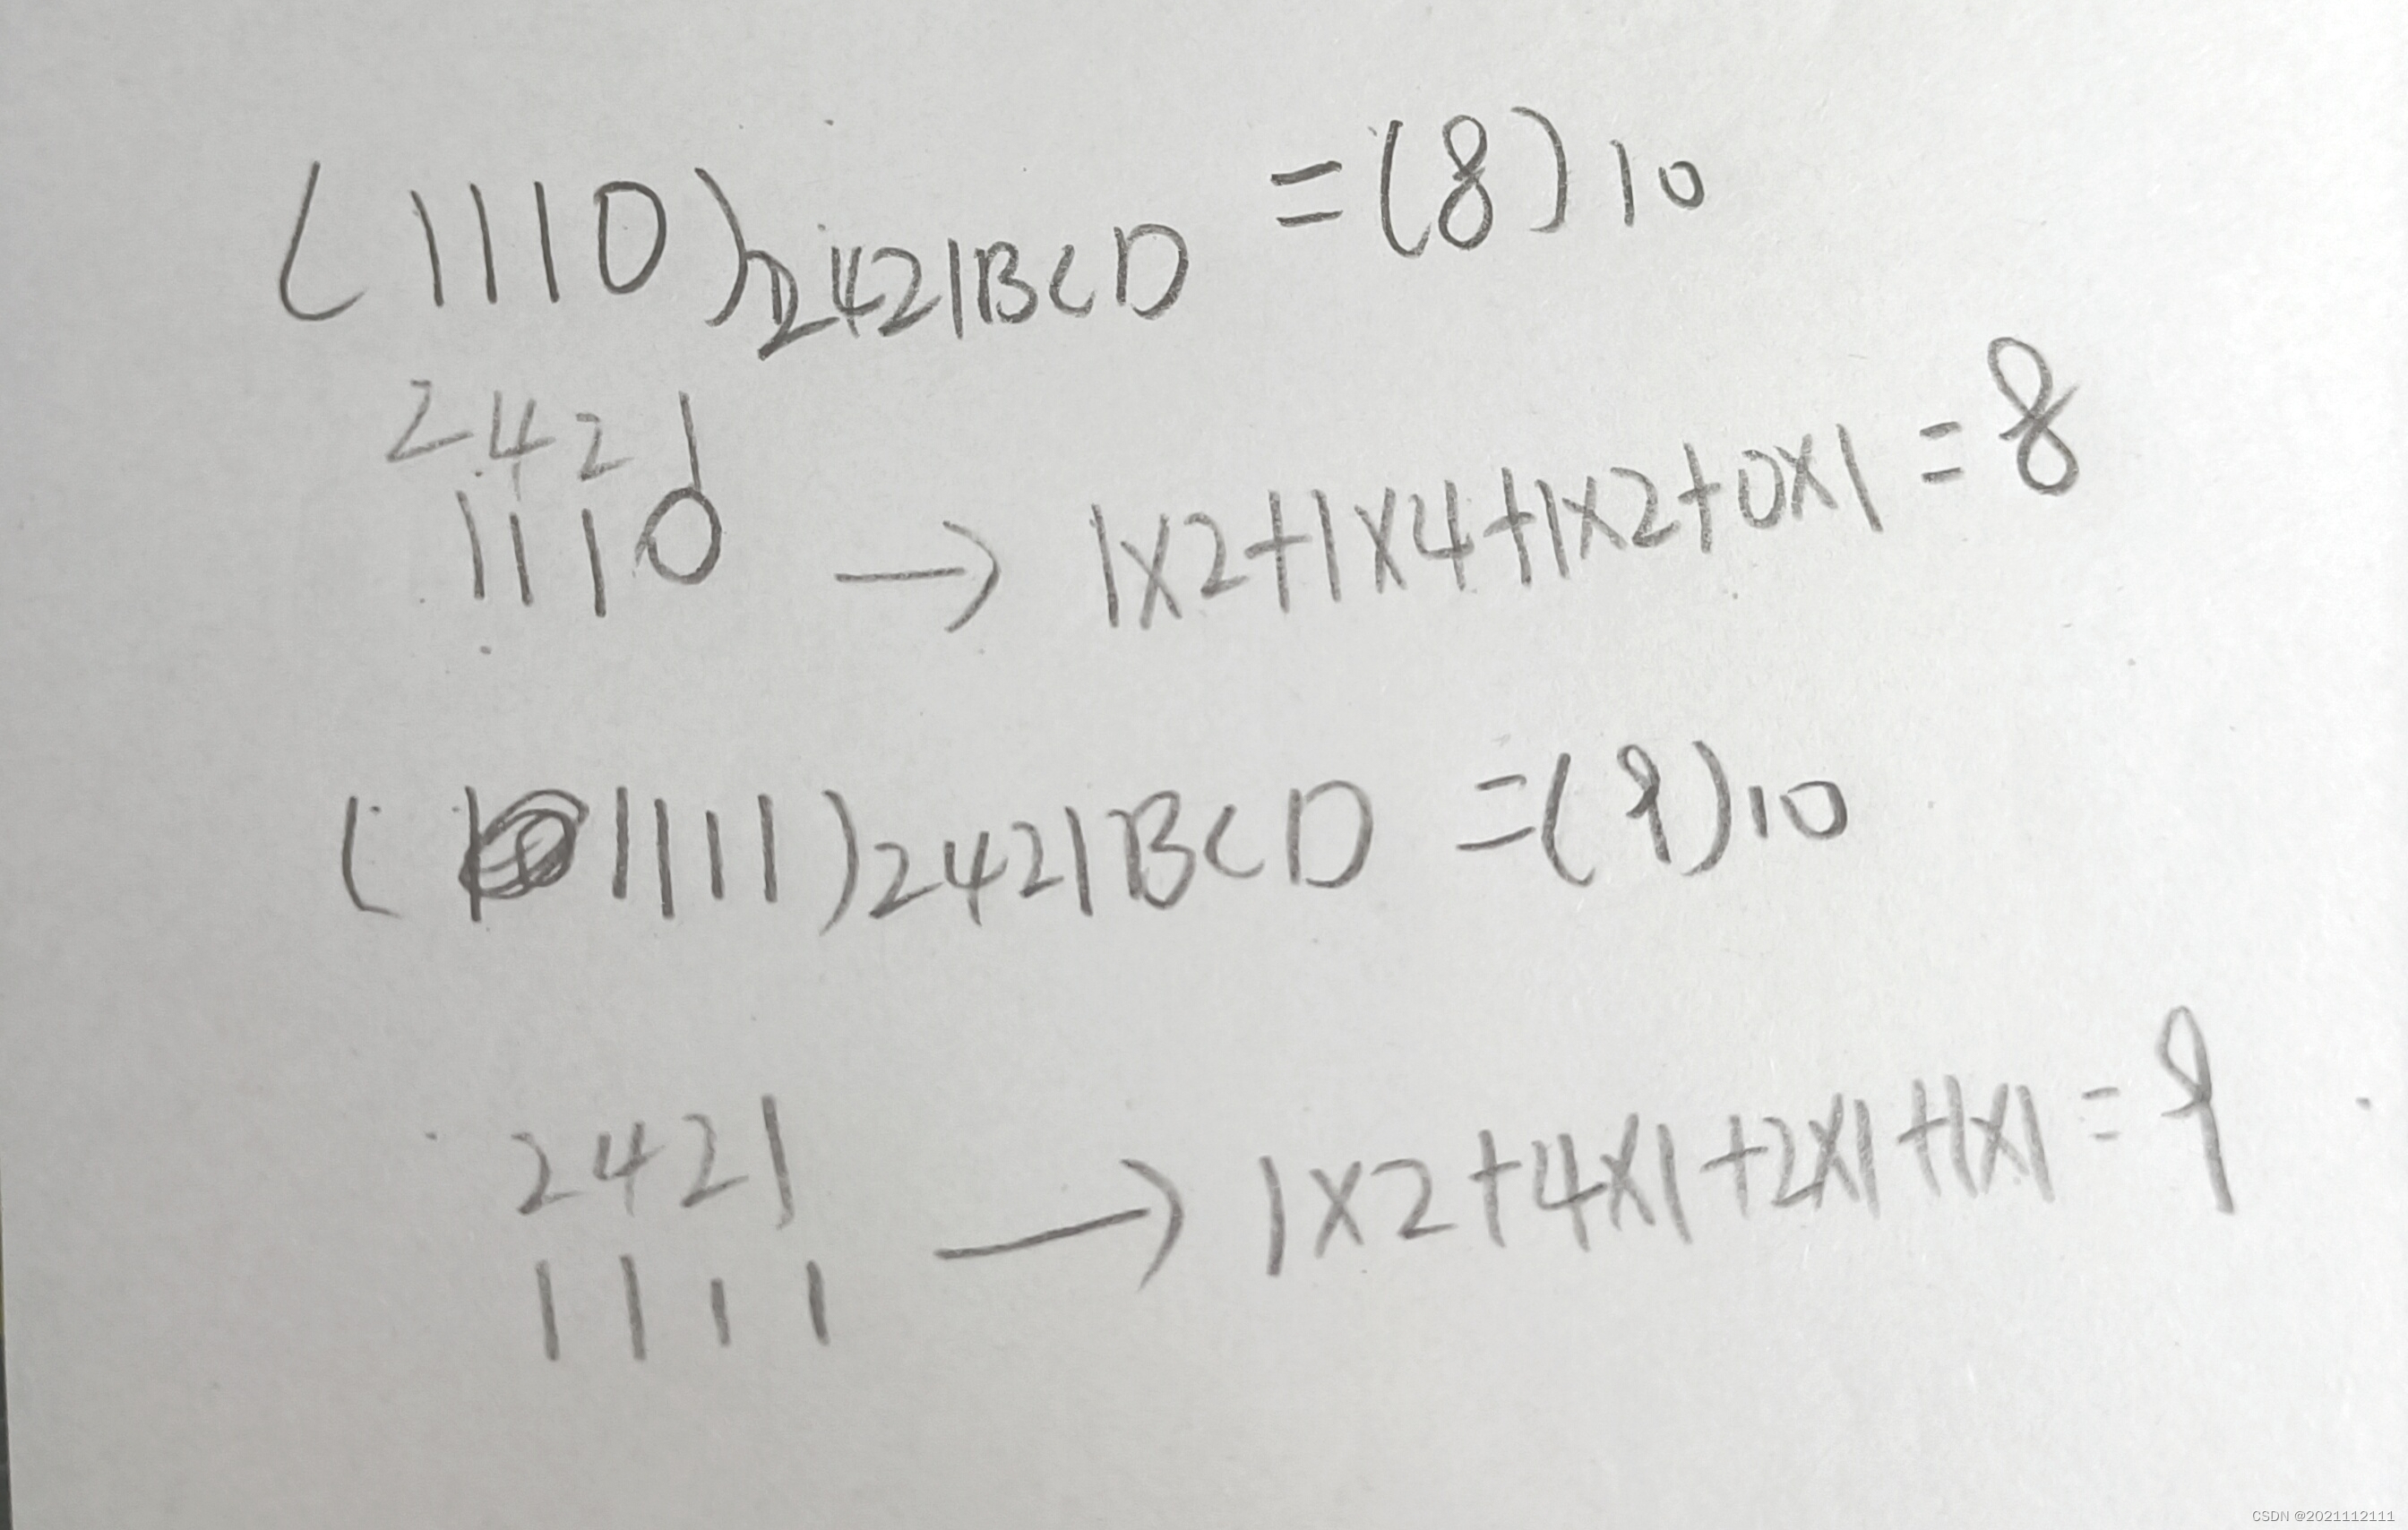 (1110)2421BCD =(8)10
2421
1110 → 1×2+1×4+1×2+0×1=8
(1111)2421BCD =(9)10
2421
1111 → 1×2+4×1+2×1+1×1=9
CSDN @2021112111